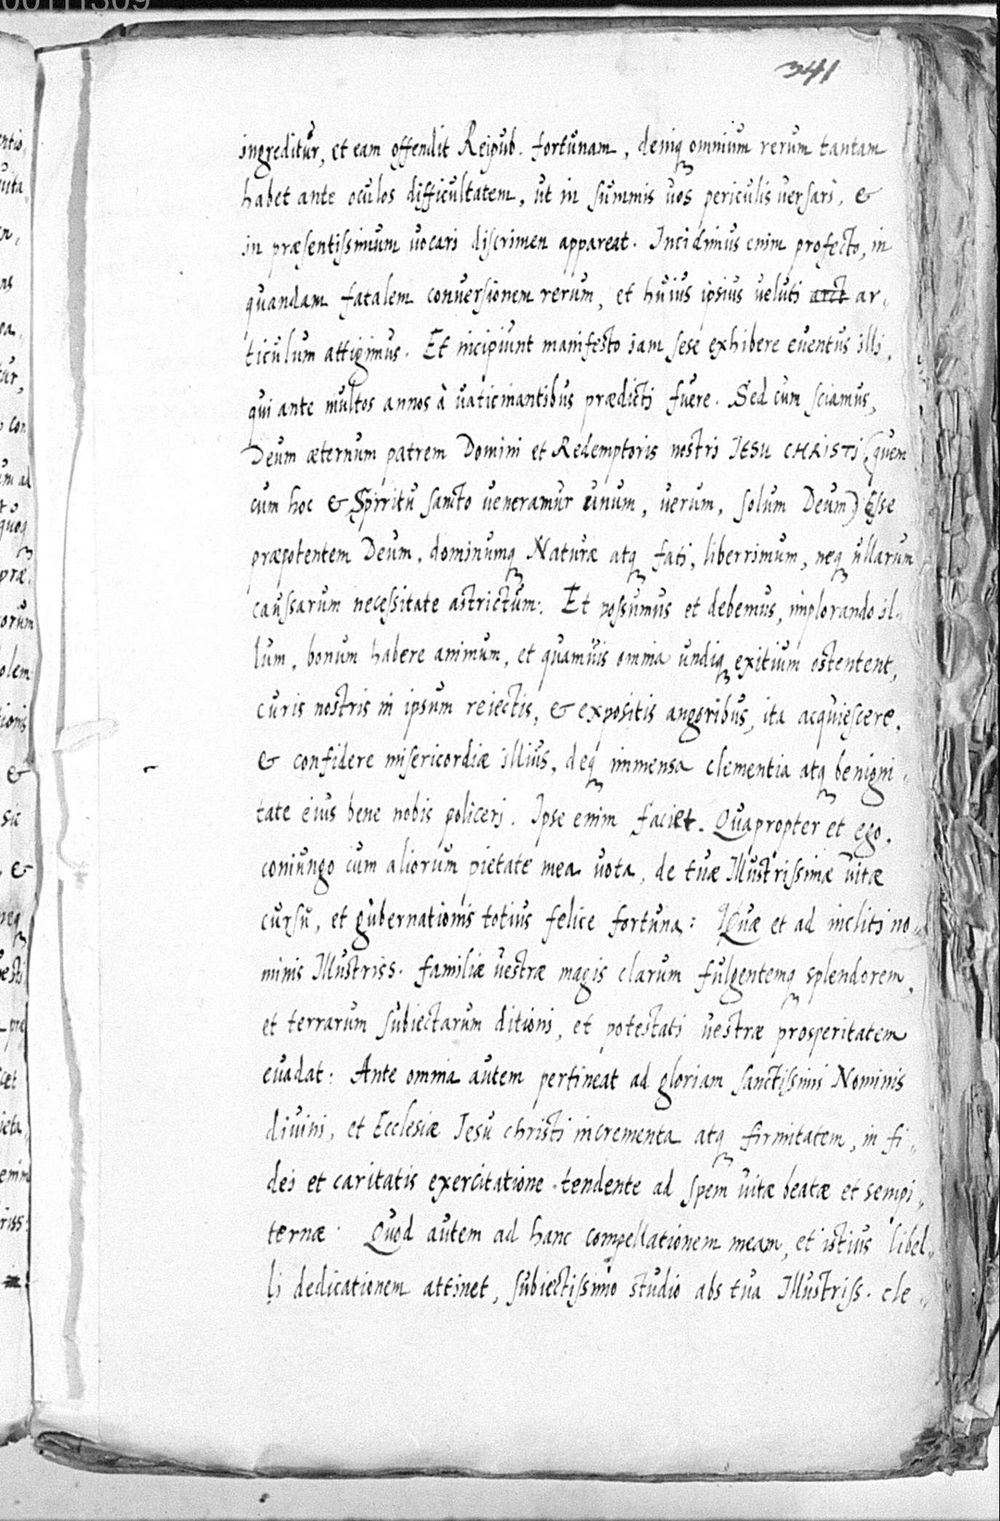 00111309
341
ingreditur, et eam offendit Reipub. fortunam, deniq omnium rerum tantam
habet ante oculos difficultatem, ut in summis uos periculis uersari, &
in præsentissimum uocari discrimen appareat. Incidimus enim profecto, in
quandam fatalem conuersionem rerum, et huius ipsius ueluti arct ar,,
ticulum attigimus. Et incipiunt manifesto iam sese exhibere euentus illi,
qui ante multos annos à uaticinantibus prædicti fuere. Sed cum sciamus,
Deum æternum patrem Domini et Redemptoris nostri JESU CHRISTI (quem
cum hoc & Spiritu sancto ueneramur unum, uerum, solum Deum) Esse
præpotentem Deum, dominumq Naturæ atq fati, liberrimum, neq ullarum
caussarum necessitate astrictum: Et possumus et debemus, implorando il,,
lum, bonum habere animum, et quamuis omnia undiq exitium ostentent,
curis nostris in ipsum reiectis, & expositis angoribus, ita acquiescere,
& confidere misericordiæ illius, deq immensa clementia atq benigni,
tate eius bene nobis policeri. Ipse enim faciet. Quapropter et ego,
coniungo cum aliorum pietate mea uota, de tuæ Illustrissimæ uitæ
cursu, et gubernationis totius felice fortuna: Quæ et ad incliti no,,
minis Illustriss. familiæ uestræ magis clarum fulgentemq splendorem,
et terrarum subiectarum ditioni, et potestati uestræ prosperitatem
euadat: Ante omnia autem pertineat ad gloriam sanctissimi Nominis
diuini, et Ecclesiæ Jesu christi incrementa atq firmitatem, in fi,,
dei et caritatis exercitatione tendente ad spem uitæ beatæ et sempi,,
ternæ. Quod autem ad hanc compellationem meam, et istius libel,,
li dedicationem attinet, subiectissimo studio abs tua Illustriss. cle,,